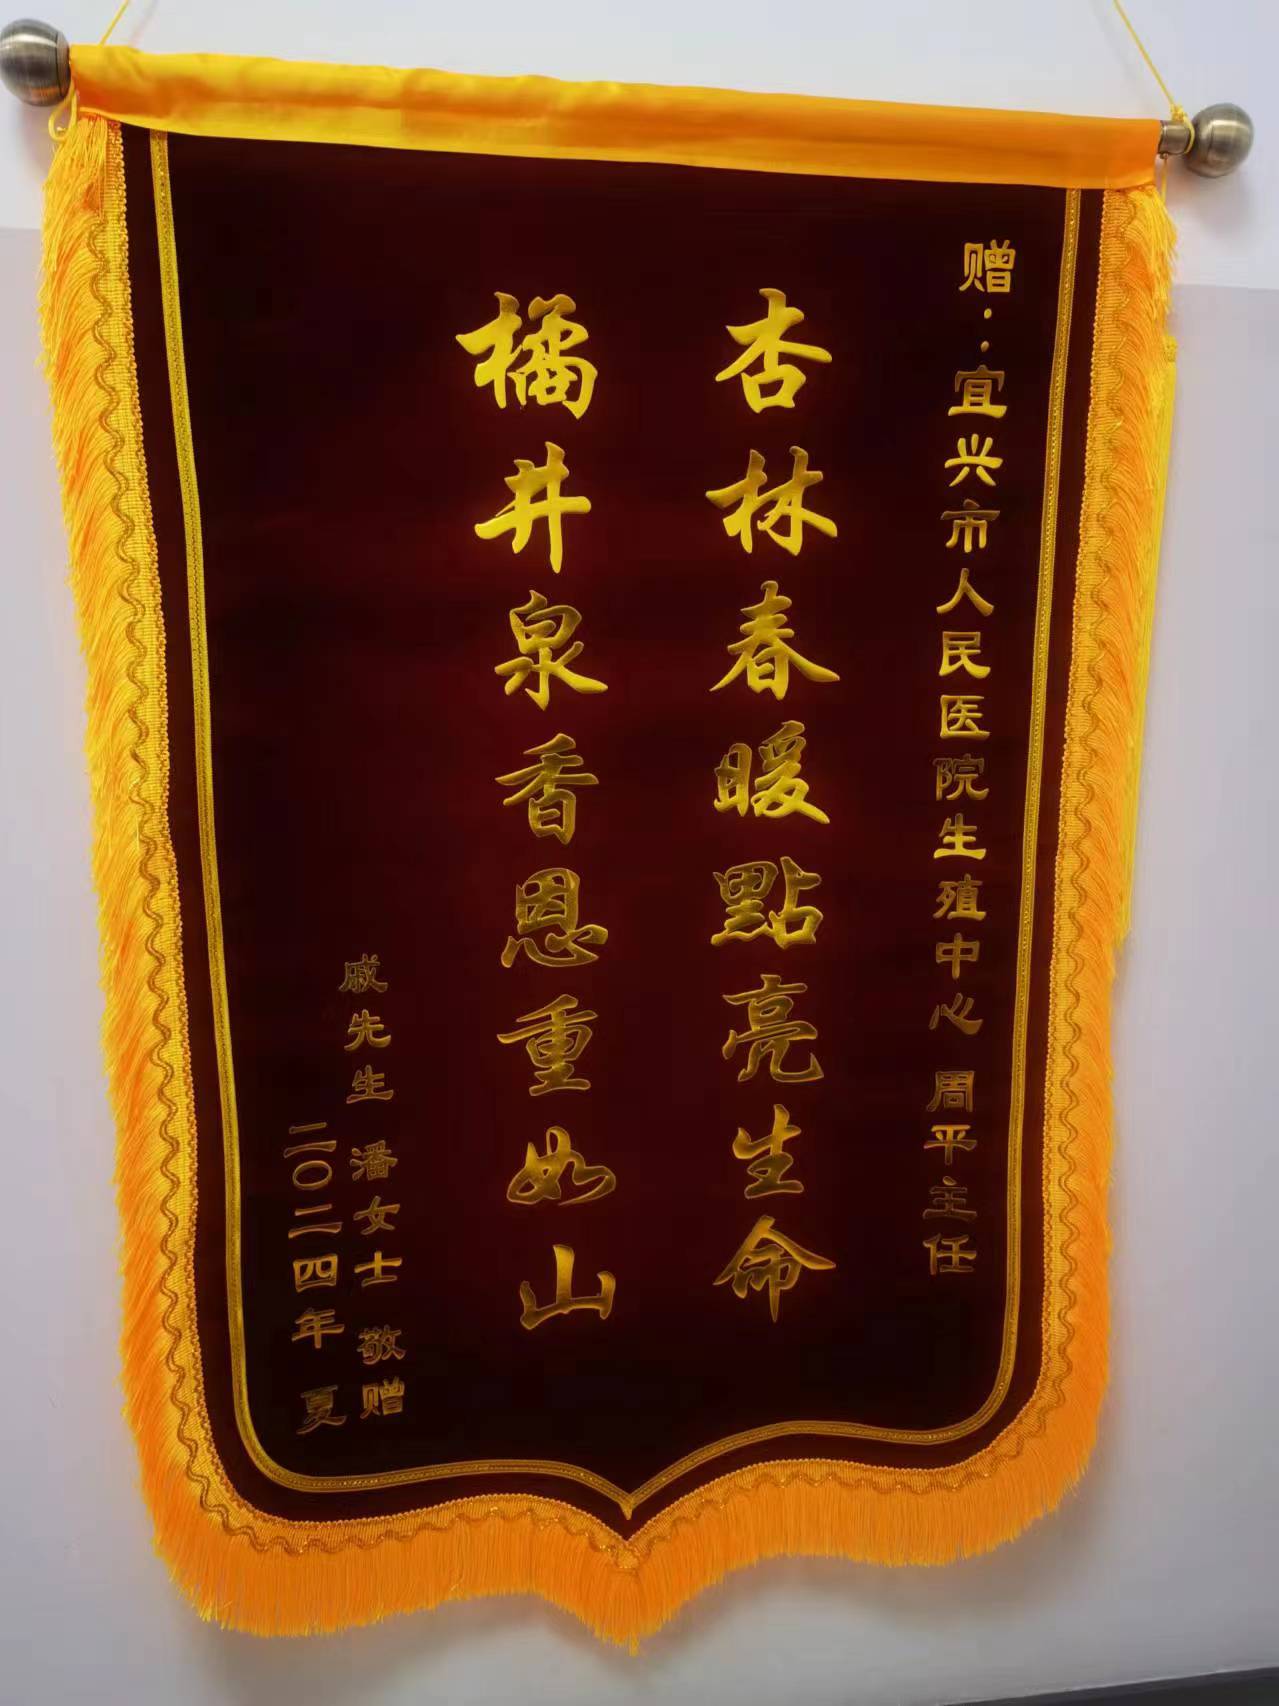 赠：宜兴市人民医院生殖中心 周平主任
杏林春暖點亮生命
橘井泉香恩重如山
戚先生 潘女士 敬赠
二〇二四年 夏